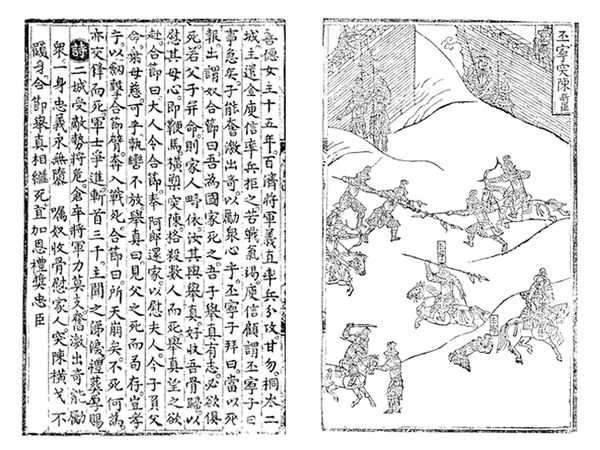 丕寧突陳 新羅
善德女主十五年。百濟將軍義直率兵分攻甘勿桐太二
城主遣金庾信率兵拒之苦戰氣竭庾信顧謂丕寧子曰
事急矣子能奮激出奇以勵衆心乎丕寧子拜曰當以死
報出謂奴合節曰吾為國家死之吾子舉真有志必欲俱
死若父子并命則家人疇依汝其與舉真好收吾骨歸以
慰其母心即鞭馬橫槊突陳格殺數人而死舉真望之欲
赴合節曰大人令合節奉阿郎還家以慰夫人今子負父
命棄母慈可乎執轡不放舉真曰見父之死而苟存豈孝
子以劒擊合節臂奔入戰死合節曰所天崩矣不死何為
亦交鋒而死軍士爭進斬首三千主聞之涕淚禮葬厚賜
詩二城受敵勢將危倉卒將軍力莫支奮激出奇能勵
衆一身忠義永無隳 囑奴收骨慰家人突陳橫戈不
顧身合節舉真相繼死宜加恩禮奬忠臣